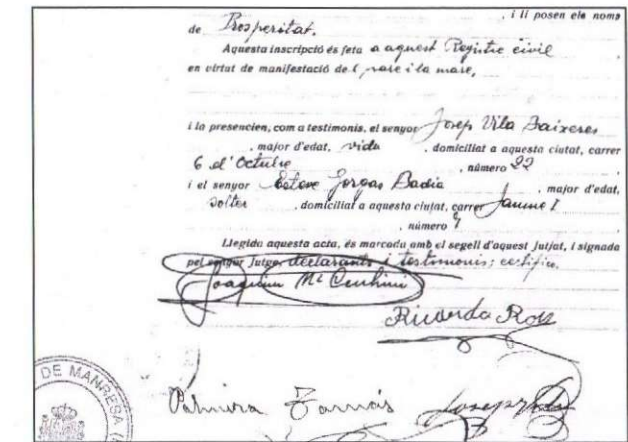 , i li posen els noms
de Prosperitat.
Aquesta inscripció és feta a aquest Registre civil
en virtut de manifestació del pare i la mare,
i la presencien, com a testimonis, el senyor Josep Vila Baixeres
, major d'edat, vidu , domiciliat a aquesta ciutat, carrer
6 d'Octubre , número 22
i el senyor Esteve Jorgas Badia , major d'edat,
solter , domiciliat a aquesta ciutat, carrer Jaume I
, número 9
Llegida aquesta acta, és marcada amb el segell d'aquest Jutjat, i signada
pel senyor Jutge, declarants i testimonis; certifico.
Joaquim Mª
Ricarda Ros
DE MANRESA
Palmira Josep